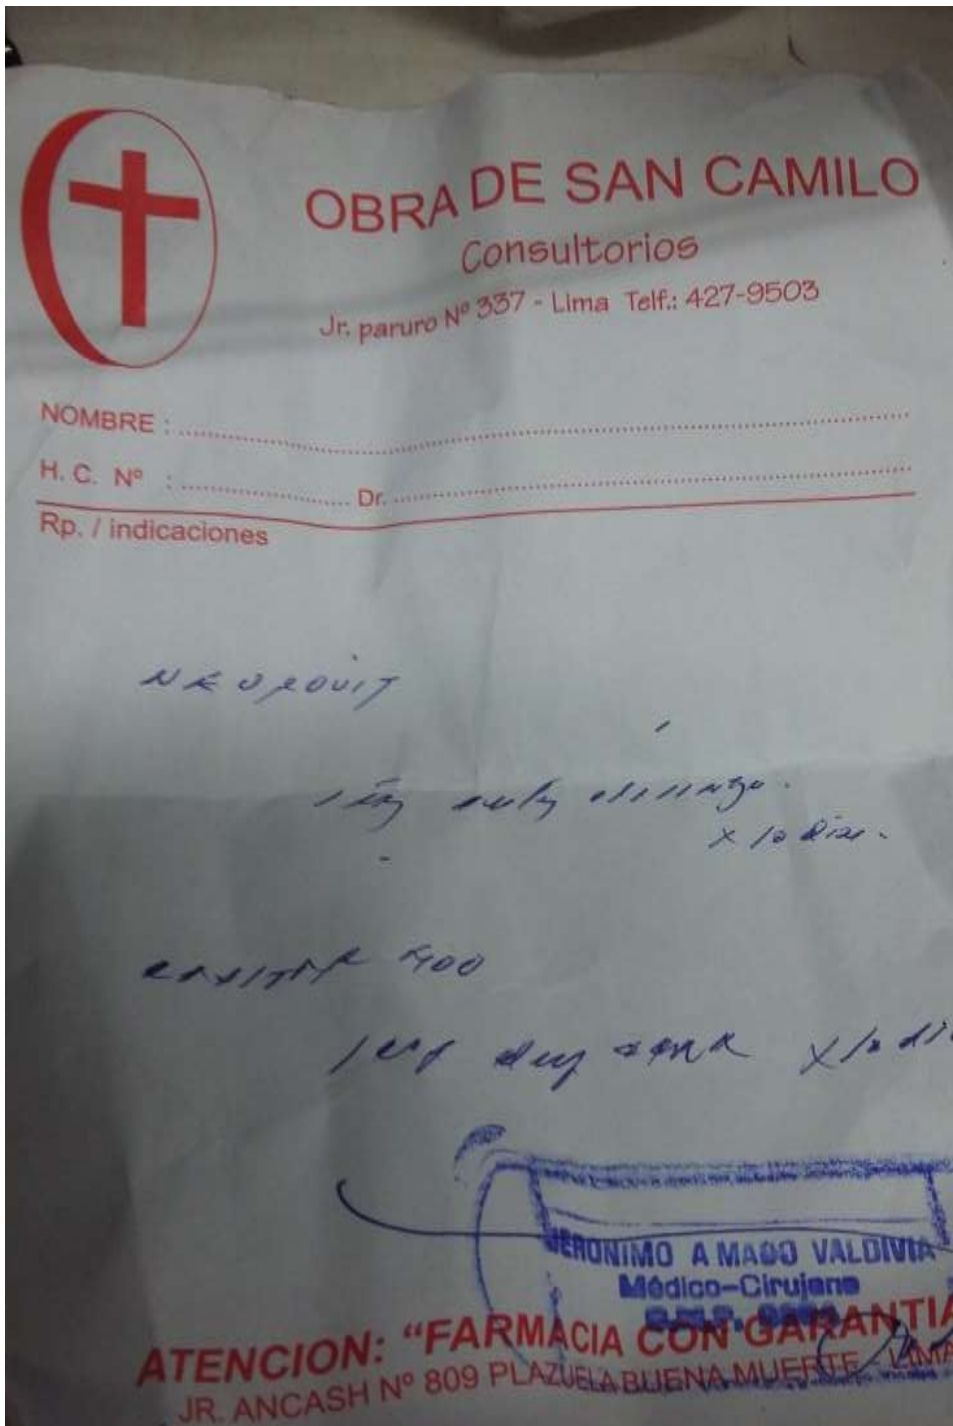 OBRA DE SAN CAMILO
Consultorios
Jr. paruro Nº 337 - Lima Telf.: 427-9503
NOMBRE :
H. C. Nº : Dr.
Rp. / indicaciones
NEUROVIT
x 10 dias.
400
1 x 10 di
JERONIMO A MAGO VALDIVIA
Médico-Cirujano
C.M.P.
ATENCION: “FARMACIA CON GARANTIA
JR. ANCASH Nº 809 PLAZUELA BUENA MUERTE - LIMA